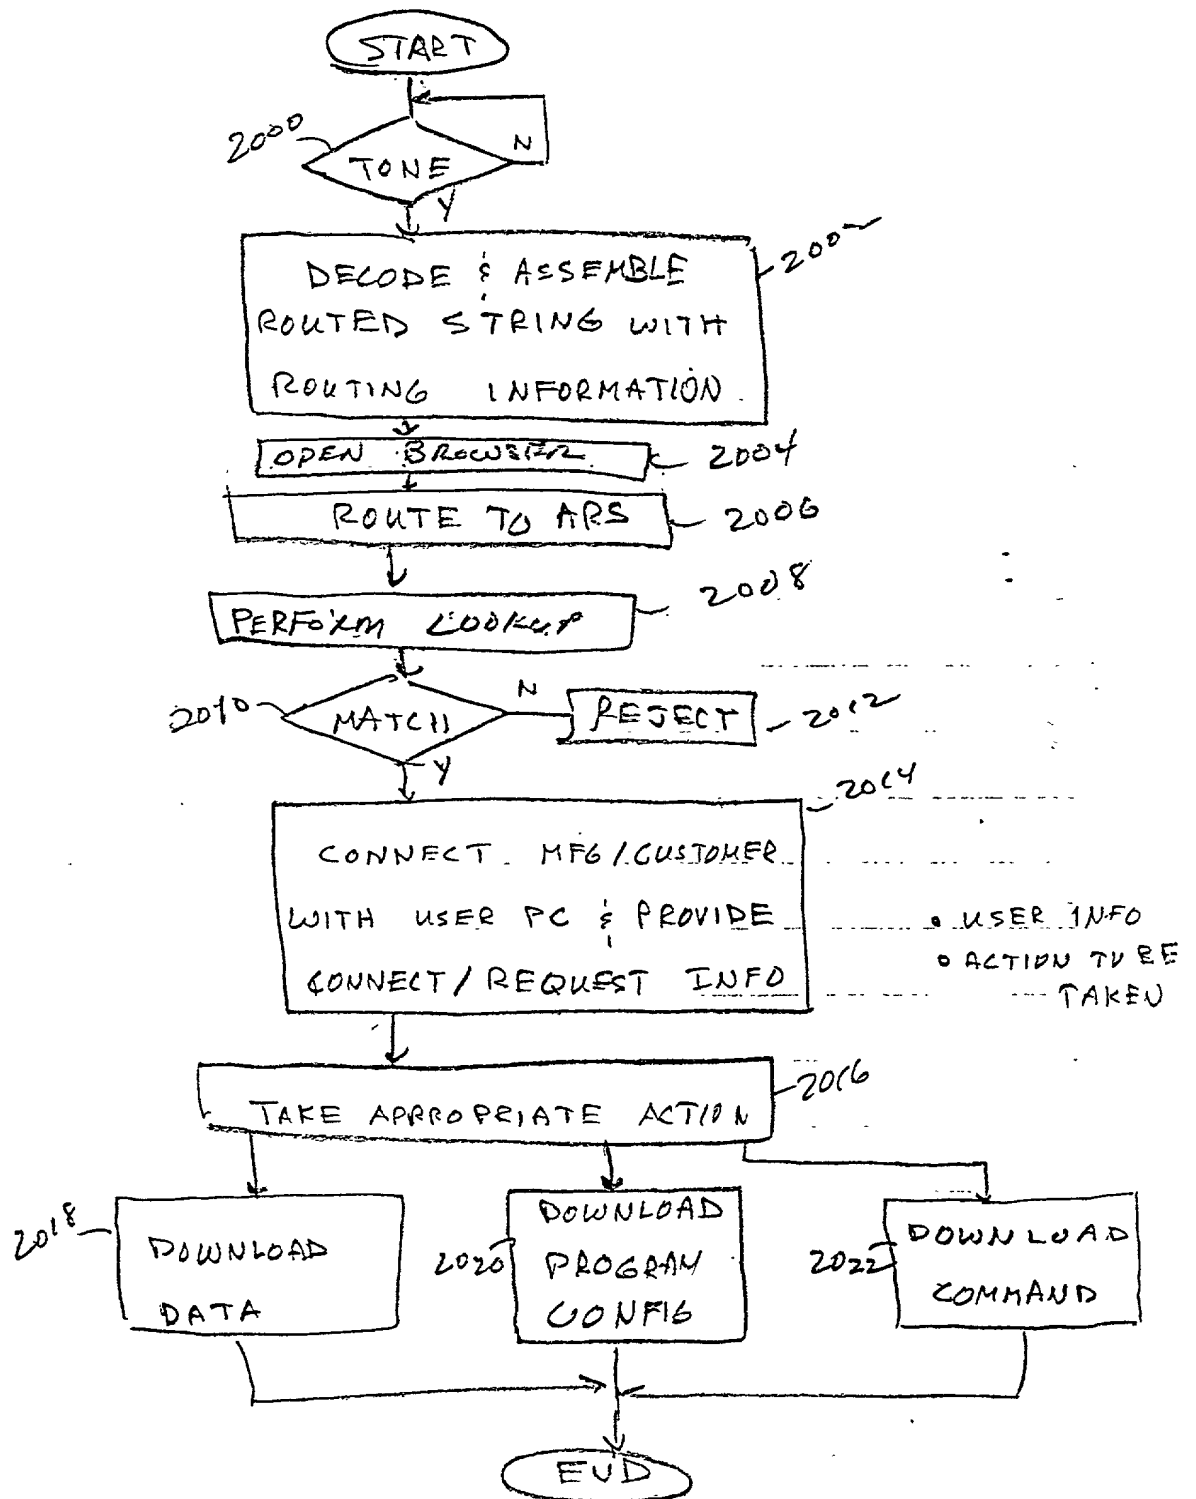 START
2000
N
TONE
Y
2002
DECODE & ASSEMBLE
ROUTED STRING WITH
ROUTING INFORMATION
OPEN BROWSER
2004
ROUTE TO ARS
2006
PERFORM LOOKUP
2008
2010
MATCH
N
REJECT
2012
Y
2014
CONNECT MFG/CUSTOMER
WITH USER PC & PROVIDE
CONNECT/REQUEST INFO
• USER INFO
• ACTION TO BE
TAKEN
2016
TAKE APPROPRIATE ACTION
2018
DOWNLOAD
DATA
2020
DOWNLOAD
PROGRAM
CONFIG
2022
DOWNLOAD
COMMAND
END